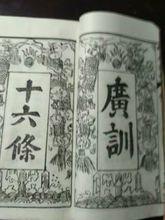 廣訓
十六條